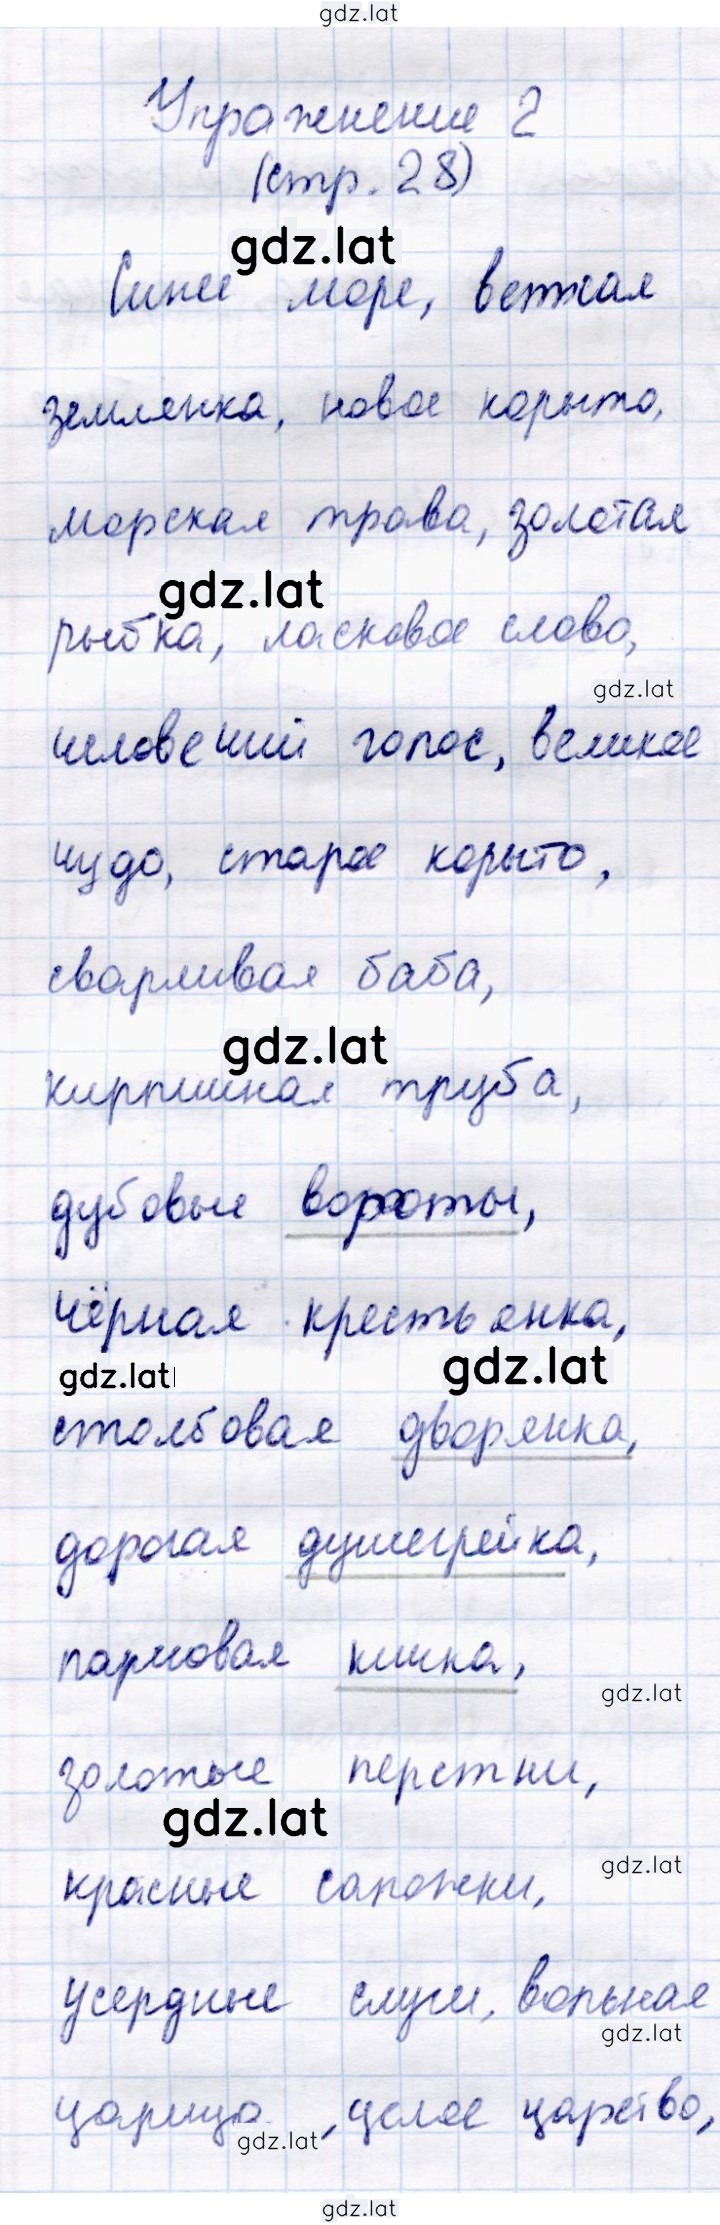 gdz.lat
Упражнение 2
(стр. 28)
gdz.lat
Синее море, ветхая
землянка, новое корыто,
морская трава, золотая
gdz.lat
рыбка, ласковое слово,
gdz.lat
человечий голос, великое
чудо, старое корыто,
сварливая баба,
gdz.lat
кирпичная труба,
дубовые вороты,
чёрная крестьянка,
gdz.lat gdz.lat
столбовая дворянка,
дорогая душегрейка,
парчовая кичка,
gdz.lat
золотые перстни,
gdz.lat
gdz.lat
красные сапожки,
усердные слуги, вольная
gdz.lat
царица, целое царство,
gdz.lat
gdz.lat